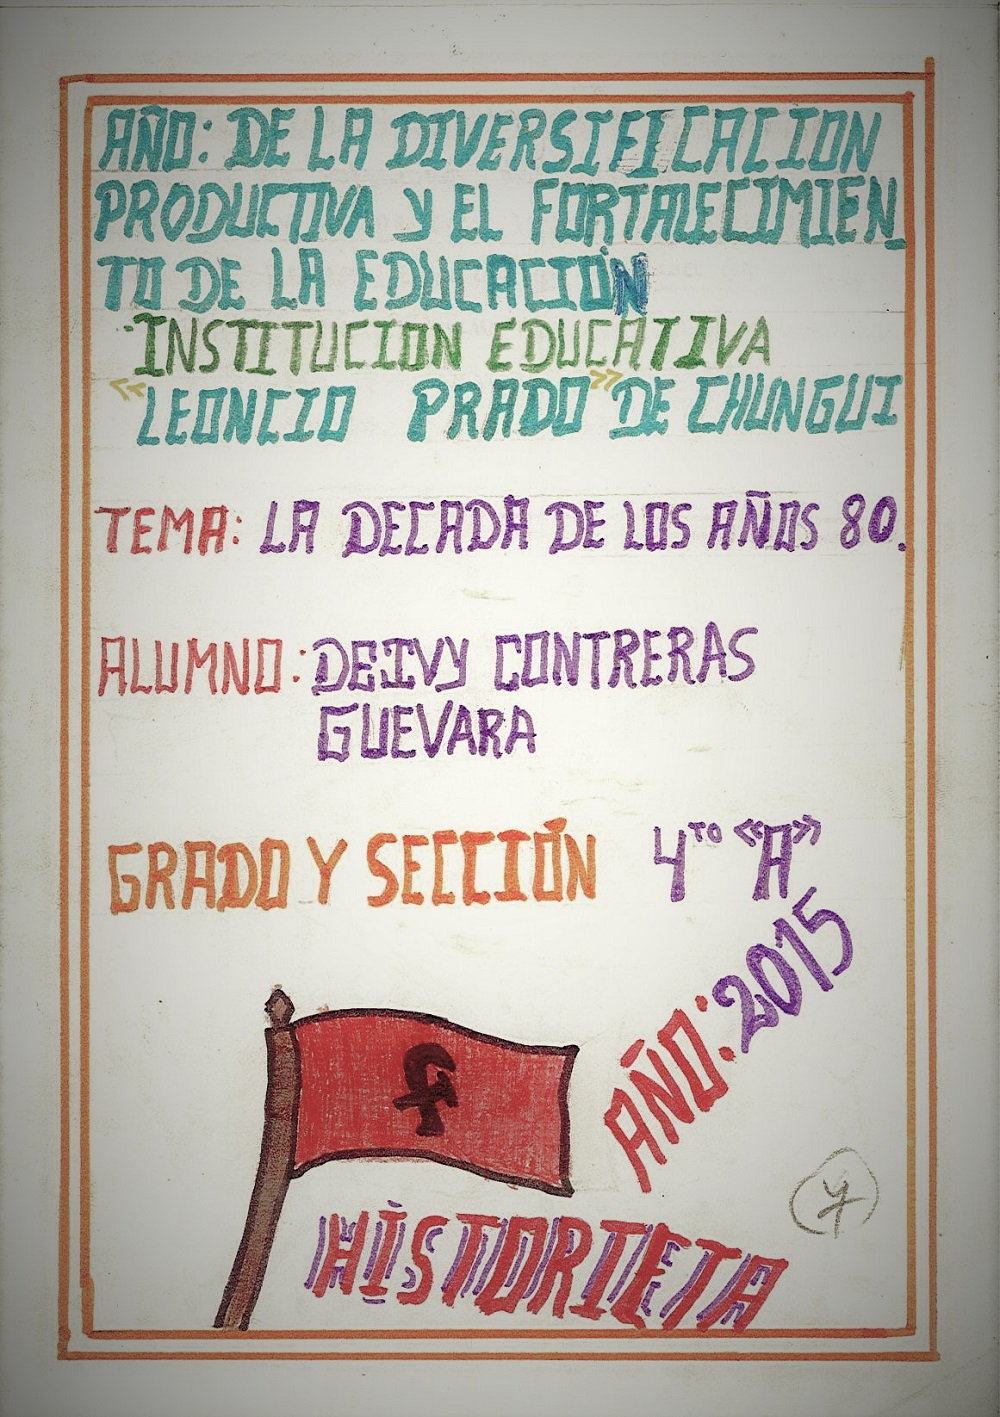 AÑO: DE LA DIVERSIFICACION
PRODUCTIVA Y EL FORTALECIMIEN_
TO DE LA EDUCACIÓN
INSTITUCION EDUCATIVA
"LEONCIO PRADO" DE CHUNGUI
TEMA: LA DECADA DE LOS AÑOS 80.
ALUMNO: DEIVY CONTRERAS
GUEVARA
GRADO Y SECCIÓN 4TO "A"
AÑO: 2015
HISTORIETA